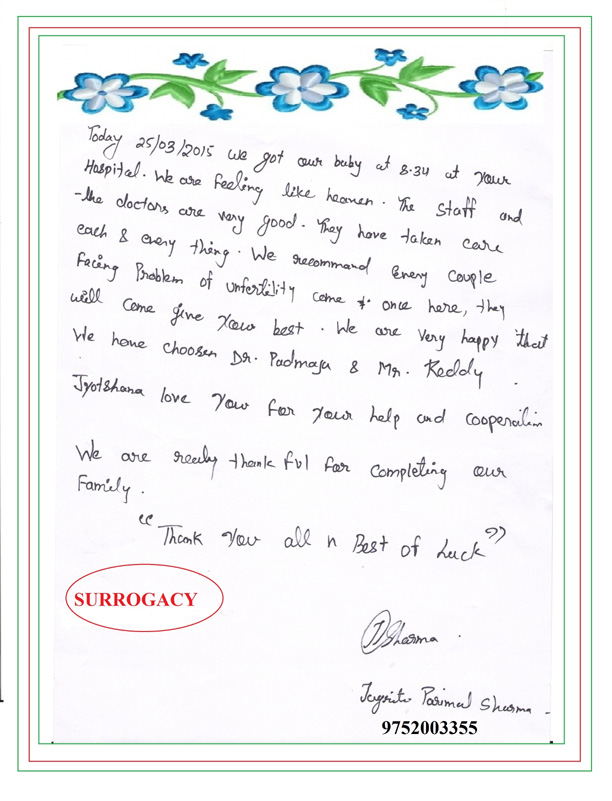 Today 25/03/2015 we got our baby at 8.34 at your
Hospital. We are feeling like heaven. The staff and
the doctors are very good. They have taken care
each & every thing. We recommand Every couple
facing Problem of unfertility come & once here, they
will come give your best. We are very happy that
We have choosen Dr. Padmaja & Mr. Reddy.
Jyotshana love you for your help and cooperation
We are really thankful for completing our
Family.
"Thank you all n Best of Luck"
SURROGACY
Sharma.
Parimal Sharma
9752003355